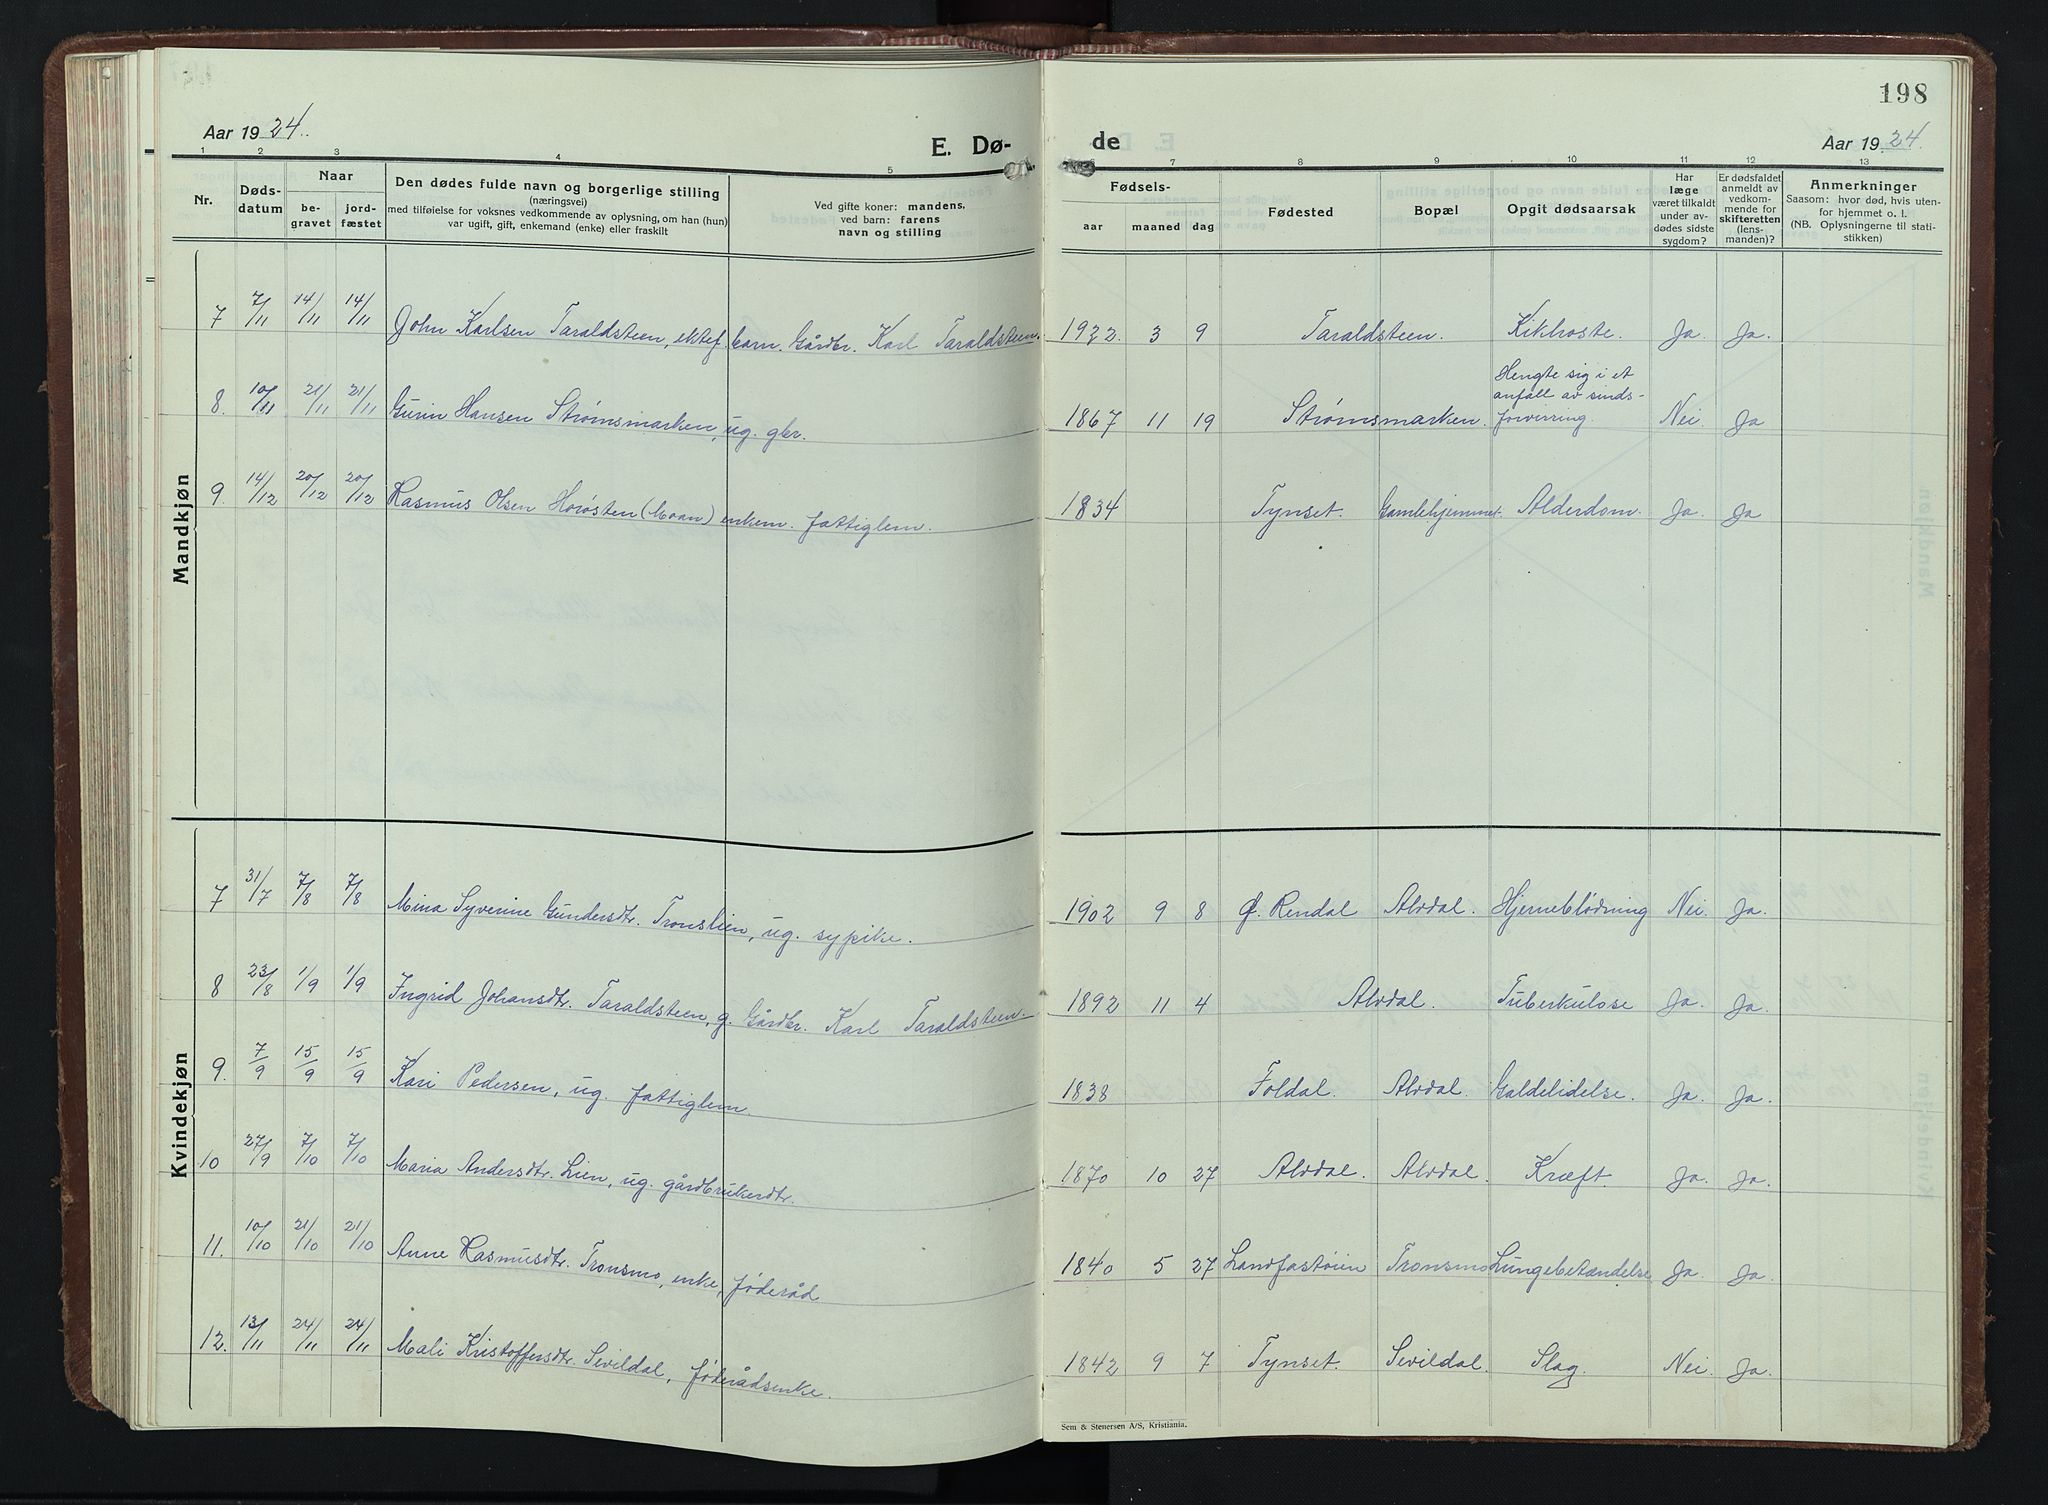 198
Aar 1924.
E. Dø-
de
Aar 1924.
1 2 3 4 5 6 7 8 9 10 11 12 13
Nr.
Døds-
datum
Naar
be-
gravet
jord-
fæstet
Den dødes fulde navn og borgerlige stilling
(næringsvei)
med tilføielse for voksnes vedkommende av oplysning, om han (hun)
var ugift, gift, enkemand (enke) eller fraskilt
Ved gifte koner: mandens,
ved barn: farens
navn og stilling
Fødsels-
aar maaned dag
Fødested
Bopæl
Opgit dødsaarsak
Har
læge
været tilkaldt
under av-
dødes sidste
sygdom?
Er dødsfaldet
anmeldt av
vedkom-
mende for
skifteretten
(lens-
manden)?
Anmerkninger
Saasom: hvor død, hvis uten-
for hjemmet o. l.
(NB. Oplysningerne til stati-
stikken)
Mandkjøn
7 7/11 14/11 14/11 John Karlsen Taraldsteen, ektef. barn. Gårdbr. Karl Taraldsteen. 1922. 3 9 Taraldsteen. Kikhoste. Ja. Ja.
8. 10/11 21/11 21/11 Gurin Hansen Strømsmarken, ug. gbr. 1867 11 19 Strømsmarken. Hengte sig i et
anfall av sinds-
forvirring. Nei. Ja
9. 14/12 20/12 20/12 Rasmus Olsen Horøsten (Moan) enkem. fattiglem. 1834 Tynset. Gamlehjemmet. Alderdom. Ja. Ja
Kvindekjøn
7 31/7 7/8 7/8 Mina Syverine Gundersdtr. Tronslien, ug. sypike. 1902 9 8 Ø. Rendal Alvdal. Hjerneblødning Nei. Ja.
8 23/8 1/9 1/9 Ingrid Johansdtr. Taraldsteen, g. Gårdbr. Karl Taraldsteen. 1892 11 4 Alvdal. Tuberkulose Ja. Ja.
9. 7/9 15/9 15/9 Kari Pedersen, ug. fattiglem. 1838 Foldal. Alvdal. Galdelidelse. Ja. Ja.
10 27/9 7/10 7/10 Maria Andersdtr. Lien, ug. gårdbrukerdtr. 1870 10 27 Alvdal. Alvdal. Kræft. Ja. Ja.
11. 10/10 21/10 21/10 Anne Rasmusdtr. Tronsmo, enke, føderåd 1840 5 27 Landfastøien Tronsmo Lungebetændelse Ja. Ja.
12. 13/11 24/11 24/11 Mali Kristoffersdtr. Sevildal, føderådsenke. 1842 9 7 Tynset. Sevildal. Slag. Nei. Ja.
Sem & Stenersen A/S, Kristiania.